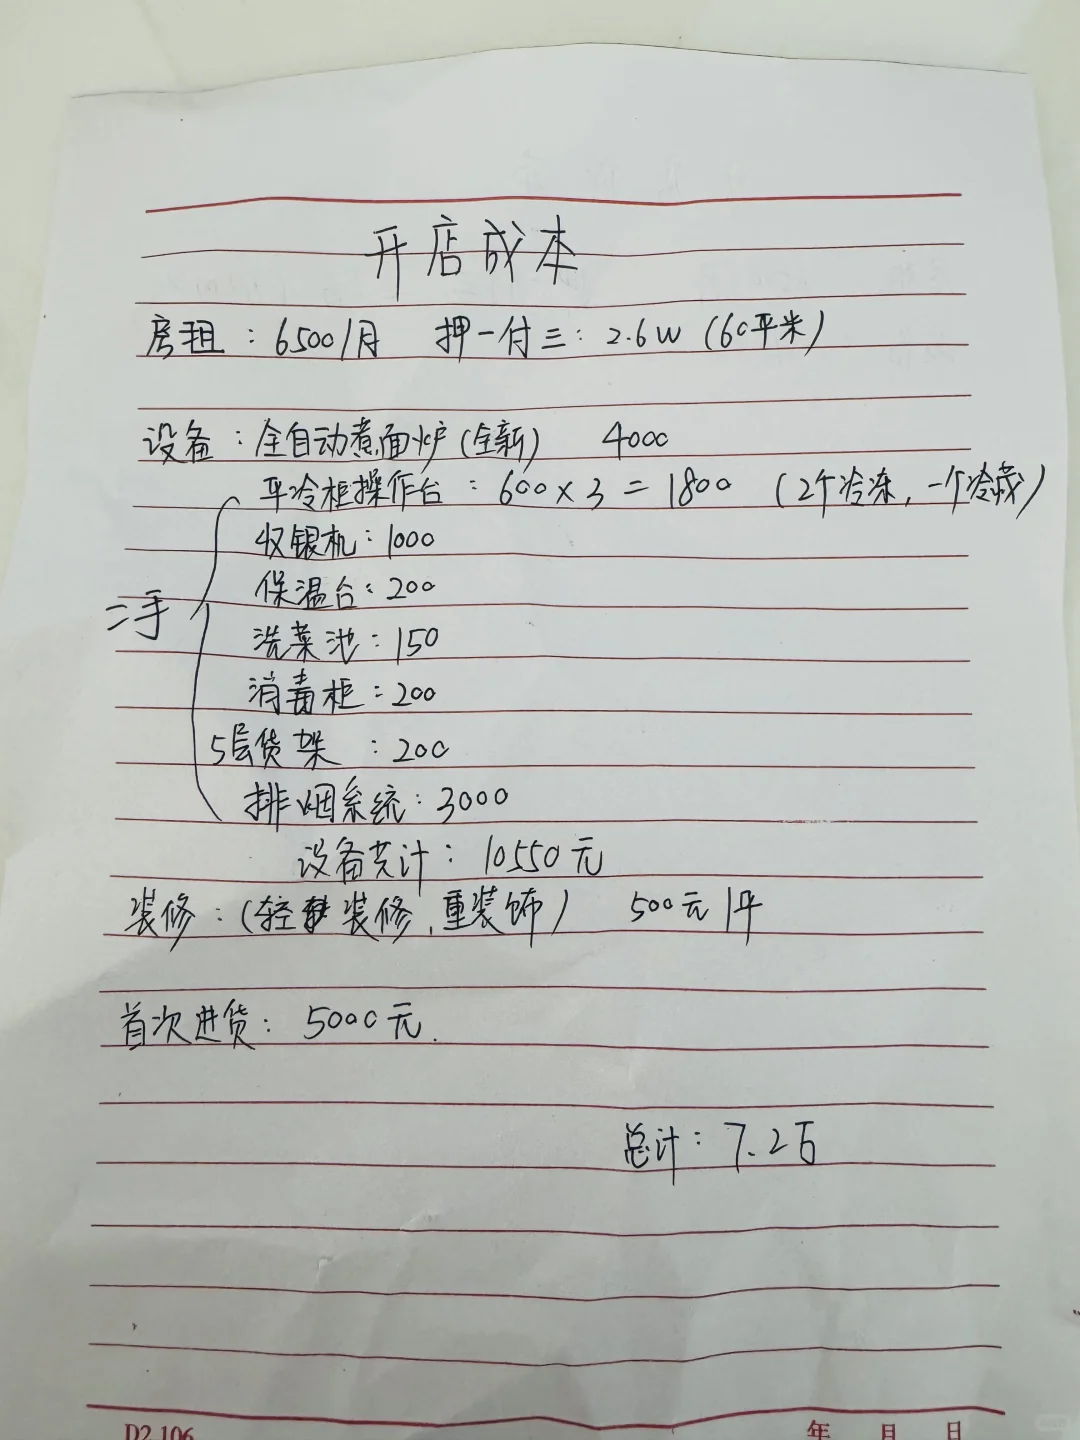 开店成本
房租：6500/月 押一付三：2.6W（60平米）
设备：全自动煮面炉（全新） 4000
平冷柜操作台：600×3=1800（2个冷冻，一个冷藏）
收银机：1000
保温台：200
二手
洗菜池：150
消毒柜：200
5层货架：200
排烟系统：3000
设备共计：10550元
装修：（轻装修，重装饰） 500元/平
首次进货：5000元.
总计：7.2万
D2.106 年 月 日